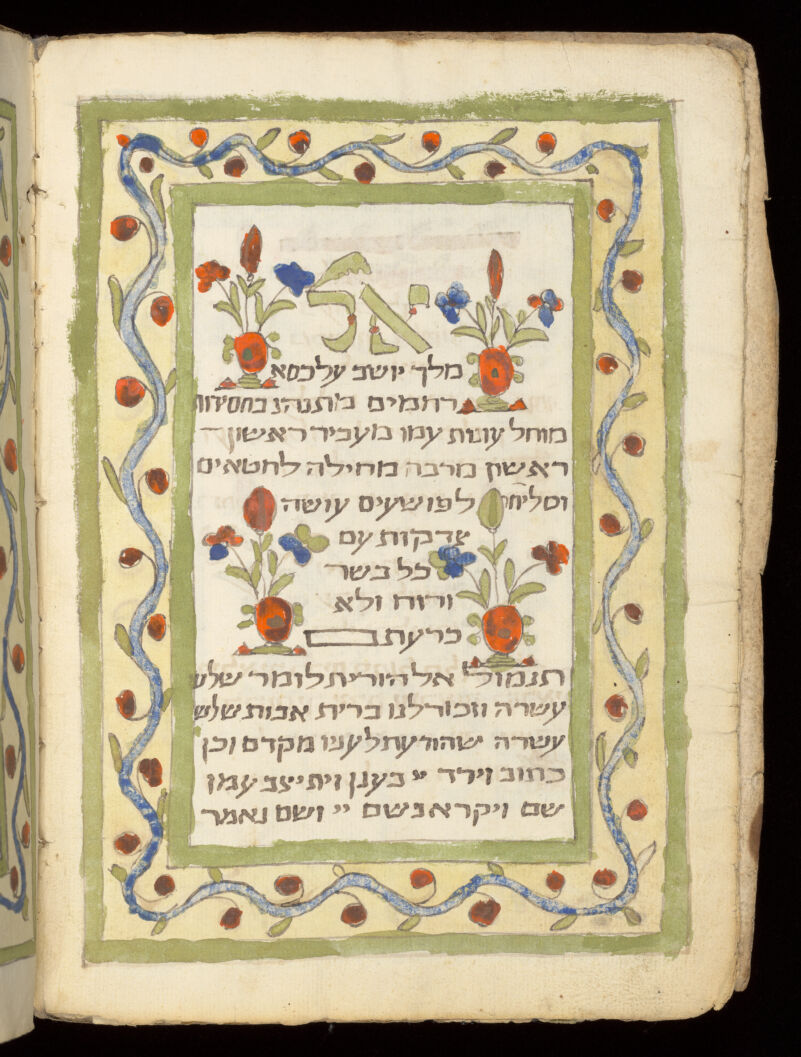 אל
מלך יושב על כסא
רחמים מתנהג בחסידות
מוחל עונות עמו מעביר ראשון
ראשון מרבה מחילה לחטאים
וסליחה לפושעים עושה
צדקות עם
כל בשר
ורוח ולא
כרעתם
תגמול אל הורית לומר שלש
עשרה וזכור לנו ברית אבות שלש
עשרה שהודעת לענו מקדם וכן
כתוב וירד יי בענן ויתיצב עמו
שם ויקרא בשם יי ושם נאמר